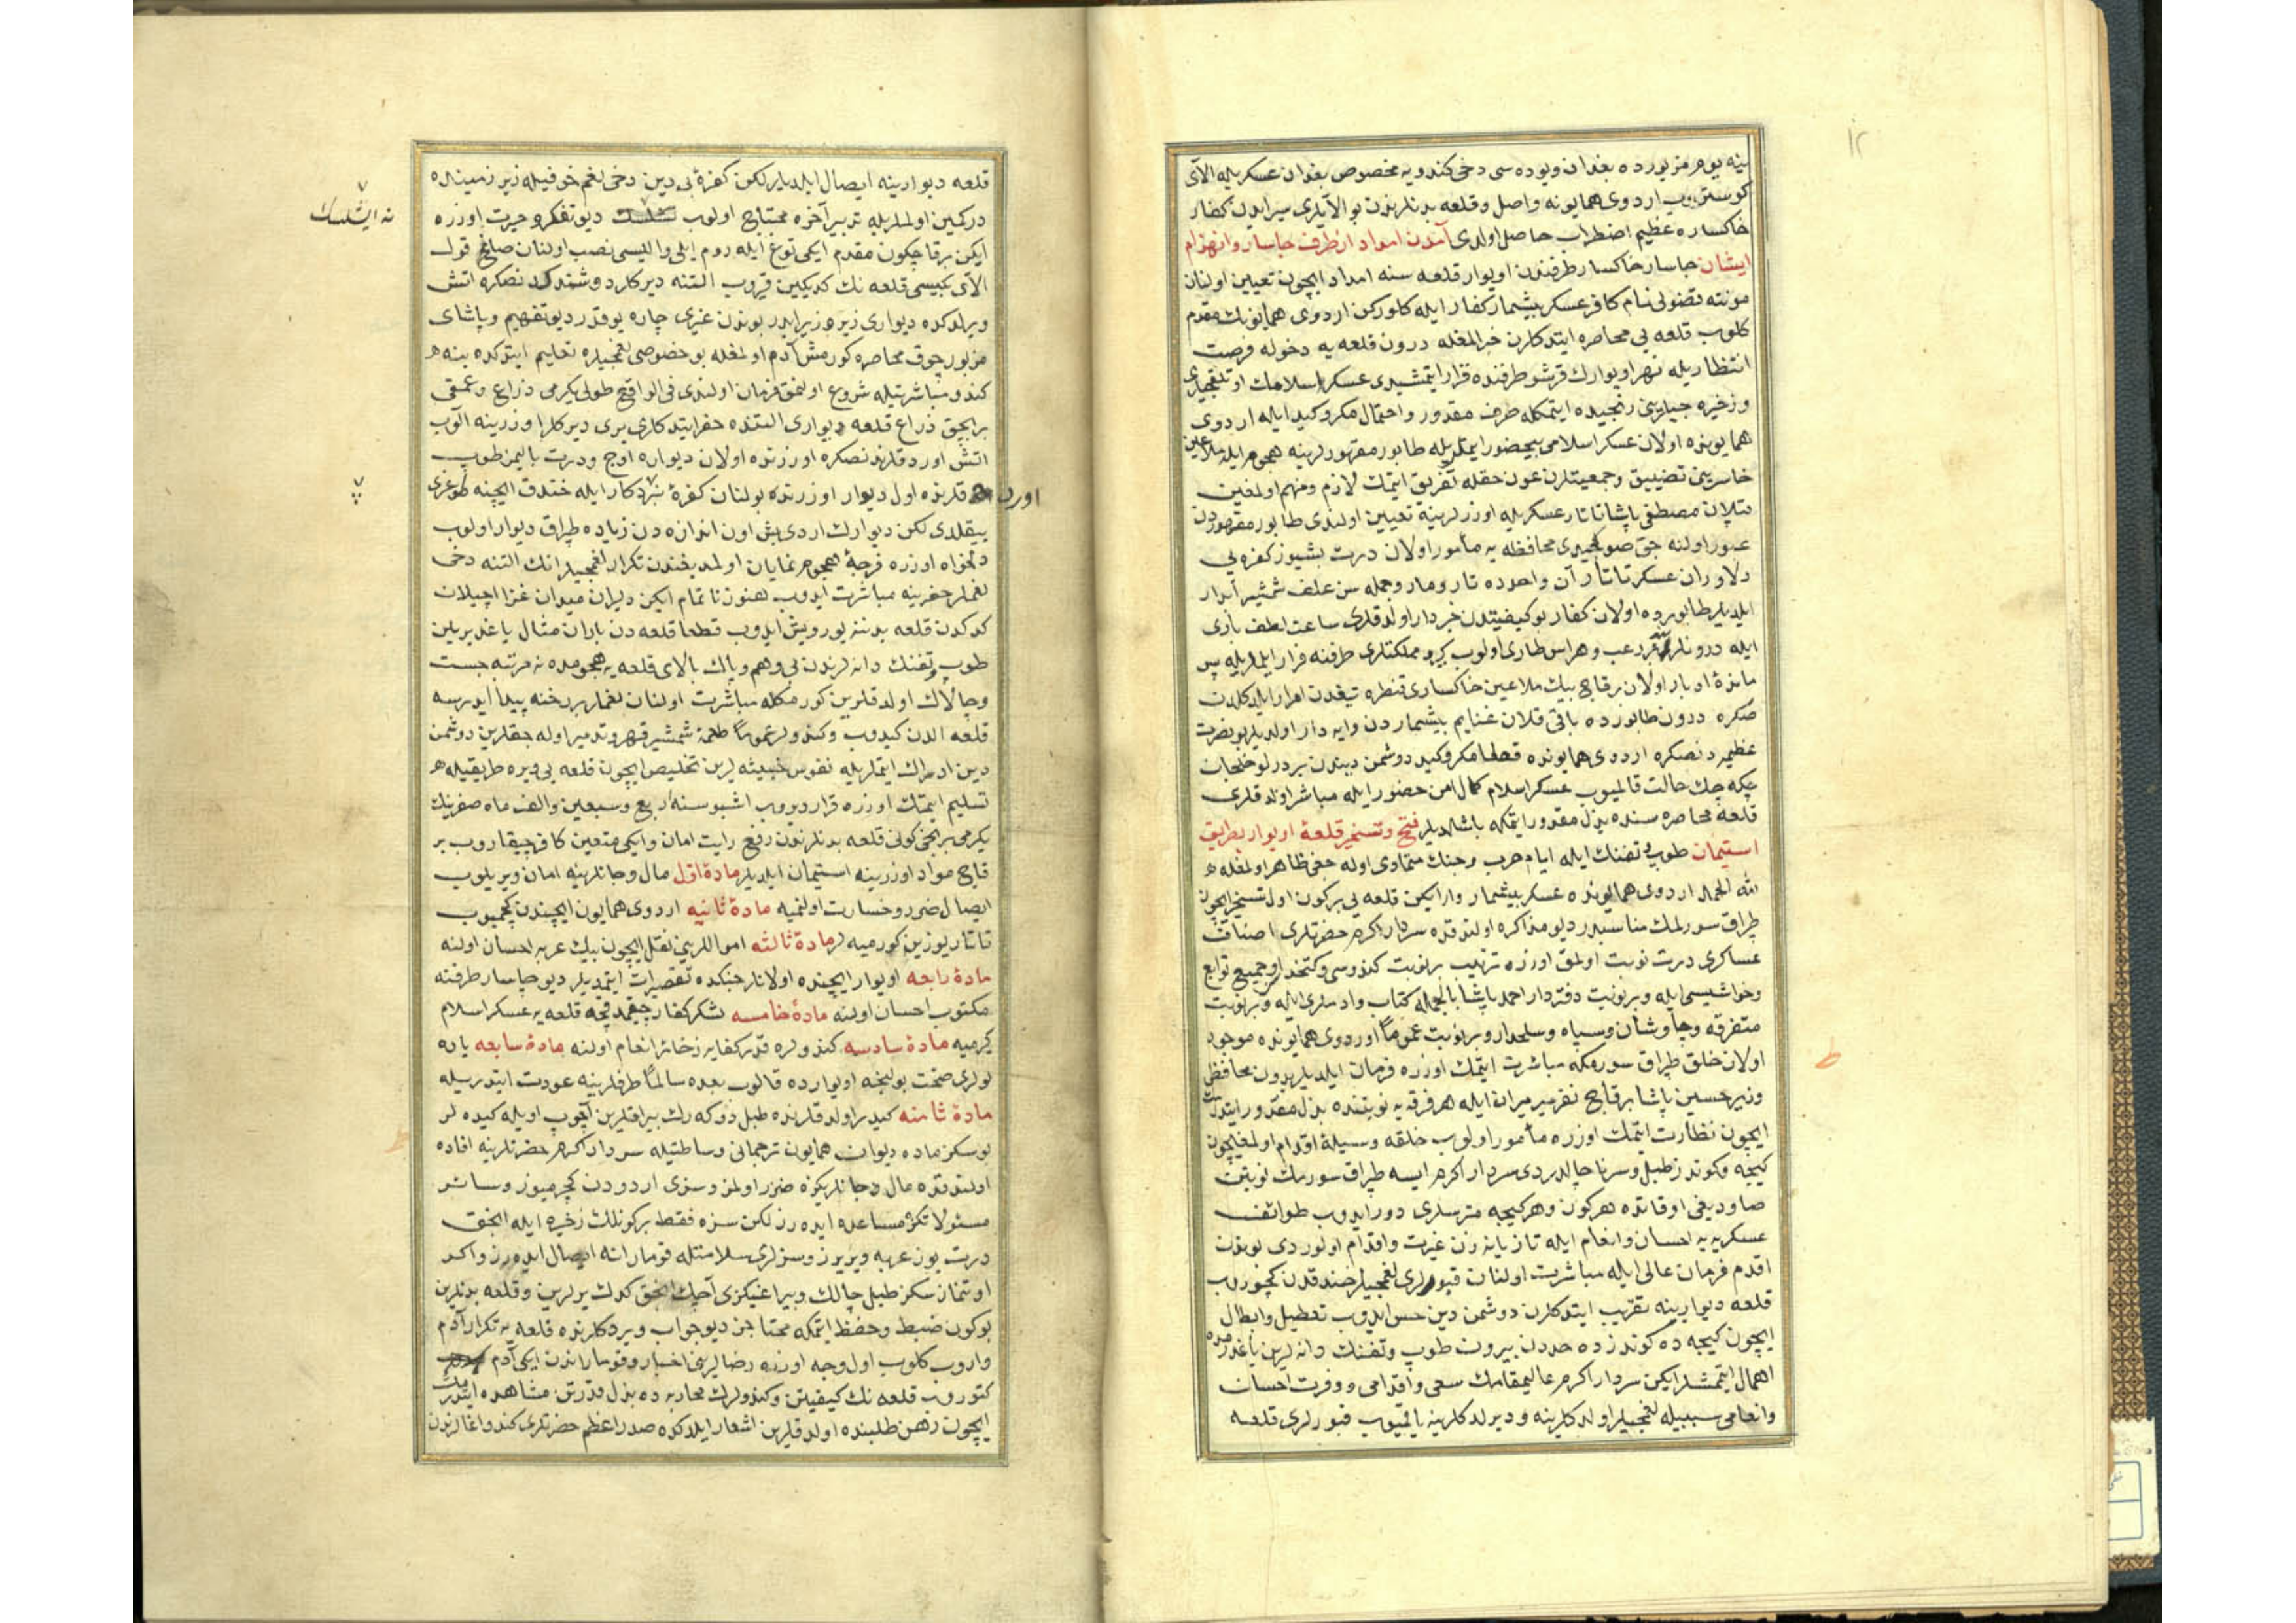 ١٢
ينه يوم مزبورده بغدان ويوده سی دخی كندويه مخصوص بغدان عسكريله الآی
كوستروب اردوی همايونه واصل وقلعه بدنلرندن بو الآيلری سير ايدن كفار
خاكساره عظيم اضطراب حاصل اولدی آمدن امداد از طرف جاسار وانهزام
ايشان جاسار خاكسار طرفندن اويوار قلعه سنه امداد ايچون تعيين اولنان
مونته قضولی نام كافر عسكر بيشمار كفار ايله كلوركن اردوی همايونك مقدم
كلوب قلعه يی محاصره ايتدكلرن خبر المغله درون قلعه يه دخوله فرصت
انتظاريله نهر اويوارك قرشو طرفنده قرار ايتمشيدی عسكر اسلامك اوتلقجيلری
وزخيره جيلرينی رنجيده ايتمكله صرف مقدور واحتمال مكر وكيد ايله اردوی
همايونده اولان عسكر اسلامی بيحضور ايتملريله طابور مقهورلرينه هجوم ايله ملاعين
خاسرينی تضييق وجمعيتلرن عون حقله تفريق ايتمك لازم ومهم اولمغين
قپلان مصطفی پاشا تاتار عسكريله اوزرلرينه تعيين اولندی طابور مقهوردن
عبور اولنه جق صو كچيدی محافظه يه مأمور اولان درت بشيوز كفره يی
دلاوران عسكر تاتار آن واحدده تار ومار وجمله سن علف شمشير آبدار
ايلديلر طابورده اولان كفار بو كيفيتدن خبردار اولدقلری ساعت لطف باری
ايله درونلرينه رعب وهراس طاری اولوب كيرو مملكتلری طرفنه فرار ايلملريله پس
مانده ادبار اولان برقاچ بيك ملاعين خاكساری قنطره تيغدن امرار ايلدكلرندن
صكره درون طابورده باقی قلان غنايم بيشماردن وايه دار اولديلر بو نصرت
عظيمه دنصكره اردوی همايونده قطعا مكر وكيد دوشمن ديندن بر درلو خلجان
چكه جك حالت قالميوب عسكر اسلام كمال امن حضور ايله مباشر اولدقلری
قلعه محاصره سنده بذل مقدور ايتمكه باشلديلر فتح وتسخير قلعۀ اويوار بطريق
استيمان طوپ وتفنك ايله ايام حرب وجنك متمادی اوله جغی ظاهر اولمغله
لله الحمد اردوی همايونده عسكر بيشمار وارايكن قلعه يی بركون اول تسخير ايچون
طپراق سورلمك مناسبدر ديو مذاكره اولندقده سردار اكرم حضرتلری اصناف
عساكری درت نوبت اولمق اوزره ترتيب بر نوبت كندوسی وكتخداسی وجميع توابع
وحواشيسی ايله وبر نوبت دفتردار احمد پاشا بالجمله كتاب وادملری ايله وبر نوبت
متفرقه وچاوشان وسپاه وسلحدار وبر نوبت عموماً اوردوی همايونده موجود
اولان خلق طپراق سورمكه مباشرت ايتمك اوزره فرمان ايلديلر بدون محافظی
وزير حسين پاشا برقاچ نفر ميرميران ايله هر فرقه يه نوبتنده بذل مقدور ايتدرمك
ايچون نظارت ايتمك اوزره مأمور اولوب خلقه وسيلۀ اقدام اولمغيچون
كيجه وكوندز طبل وسرنا چالدردی سردار اكرم ايسه طپراق سورمك نوبتن
صاوديغی اوقاتده هركون وهركيجه مترسلری دور ايدوب طوائف
عسكريه يه احسان وانعام ايله تازيانه زن غيرت واقدام اولوردی بوندن
اقدم فرمان عالی ايله مباشرت اولنان قپولری لغمجيلر خندقدن كچوروب
قلعه ديوارينه تقريب ايتدكلرن دوشمن دين حس ايدوب تعطيل وابطال
ايچون كيجه ده كوندزده حددن بيرون طوپ وتفنك دانه لرين ياغدرمده
اهمال ايتمشلر ايكن سردار اكرم عاليمقامك سعی واقدامی ووفرت احسان
وانعامی سببيله لغمجيلر اولدكلرينه وديرلدكلرينه باقميوب قپولری قلعه
قلعه ديوارينه ايصال ايلديلر لكن كفرۀ بی دين دخی لغم خوفيله زير زمينده
دركمين اولملريله تدبير آخره محتاج اولوب ديو تفكر وحيرت اوزره
نه ايشلسك
ايكن برقاچكون مقدم ايكی توغ ايله روم ايلی واليسی نصب اولنان صالح قول
الآی بكيسی قلعه نك كديكين قيروب التنه ديركلر دوشندكدنصكره اتش
ويرلدكده ديواری زير وزبر ايدر بوندن غيری چاره يوقدر ديو تفهيم وپاشای
مزبور چوق محاصره كورمش آدم اولمغله بو خصوصی لغمجيلره تعليم ايتدكده ينه
كندو مباشرتيله شروع اولنمق فرمان اولندی فی الواقع طولی يكرمی ذراع وعمقی
بربچق ذراع قلعه ديواری التنده حفر ايتدكلری يری ديركلر اوزرينه الوب
اتش اوردقلرندنصكره اوزرنده اولان ديواره اوچ ودرت باليمز طوپ
اورد قلرنده اول ديوار اوزرنده بولنان كفرۀ بدكار ايله خندق ايچنه طوغری
ييقلدی لكن ديوارك اردی بش اون اندازه دن زياده طپراق ديوار اولوب
دلخواه اوزره فرجۀ هجوم نمايان اولمديغندن تكرار لغمجيلر انك التنه دخی
لغملر حفرينه مباشرت ايدوب هنوز ناتمام ايكن دليران ميدان غزا اچيلان
كدكدن قلعه بدننه يورويش ايدوب قطعا قلعه دن باران مثال ياغديريلن
طوپ وتفنك دانه لرندن بی وهم وباك بالای قلعه يه هجومده نه مرتبه جست
وچالاك اولدقلرين كورمكله مباشرت اولنان لغملر بر رخنه پيدا ايدرسه
قلعه الدن كيدوب وكندولر عموماً طعمۀ شمشير قهر وتدمير اوله جقلرين دوشمن
دين ادراك ايتملريله نفوس خبيثه لرين تخليص ايچون قلعه يی ويره طريقيله
تسليم ايتمك اوزره قرار ويروب اشبو سنه اربع وسبعين والف ماه صفرينك
يكرمی برنجی كونی قلعه بدنلرندن رفع رايت امان وايكی متعين كافر چيقاروب بر
قاچ مواد اوزرينه استيمان ايلديلر مادۀ اول مال وجانلرينه امان ويريلوب
ايصال ضرر وخسارت اولنميه مادۀ ثانيه اردوی همايون ايچندن كچميوب
تاتار يوزين كورميه لر مادۀ ثالثه اموالرينی نقل ايچون بيك عربه احسان اولنه
مادۀ رابعه اويوار ايچنده اولانلر جنكده تقصيرات ايتمديلر ديو جاسار طرفنه
مكتوب احسان اولنه مادۀ خامسه لشكر كفار چيقمدقجه قلعه يه عسكر اسلام
كيرميه مادۀ سادسه كندولره قدر كفايه زخائر انعام اولنه مادۀ سابعه ياره
لولری صحت بولنجه اويوارده قالوب بعده سالماً طرفلرينه عودت ايتدريله
مادۀ ثامنه كيدر اولدقلرنده طبل دوكه رك بيراقلرين آچوب اويله كيده لر
بو سكز ماده ديوان همايون ترجمانی وساطتيله سردار اكرم حضرتلرينه افاده
اولندقده مال وجانلريكزه ضرر اولمز وسزی اردودن كچرميوز وسائر
مسئولاتكزه مساعده ايده رز لكن سزه فقط بركونلك زخيره ايله انجق
درت يوز عربه ويريرز وسزلری سلامتله قومارانه ايصال ايده رز واكر
اوتنماز سكز طبل چالك وبيراغيكزی آچك انجق كدك يرلرين وقلعه بدنلرين
بوكون ضبط وحفظ ايتمكه محتاجز ديو جواب ويردكلرنده قلعه يه تكرار آدم
واروب كلوب اول وجه اوزره رضالرينی اخبار وقوماراندن ايكی آدم
كتوروب قلعه نك كيفيتن وكندولرك محاربه ده بذل قدرتن مشاهده ايتدرمك
ايچون رهن طلبنده اولدقلرين اشعار ايلدكده صدر اعظم حضرتلری كندو اغالرندن